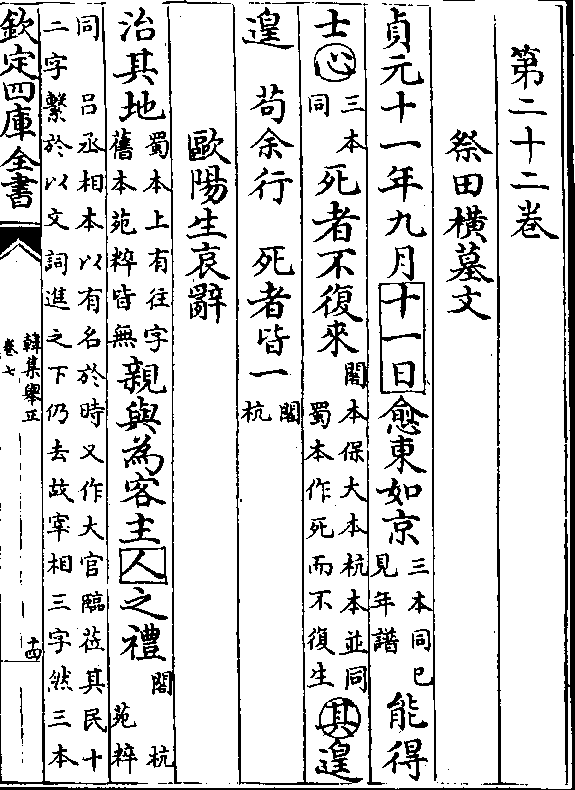 第二十二卷
祭田橫墓文
貞元十一年九月十一日愈東如京三本同已見年譜能得
士心三本同死者不復來閣本保大本杭本並同蜀本作死而不復生其遑
遑苟余行死者皆一閣杭
歐陽生哀辭
治其地蜀本上有往字舊本苑粹皆無親與為客主人之禮閣杭苑粹
同呂丞相本以有名於時又作大官臨莅其民十
二字繫於以文詞進之下仍去故宰相三字然三本
欽定四庫全書
韓集舉正
卷七
十四